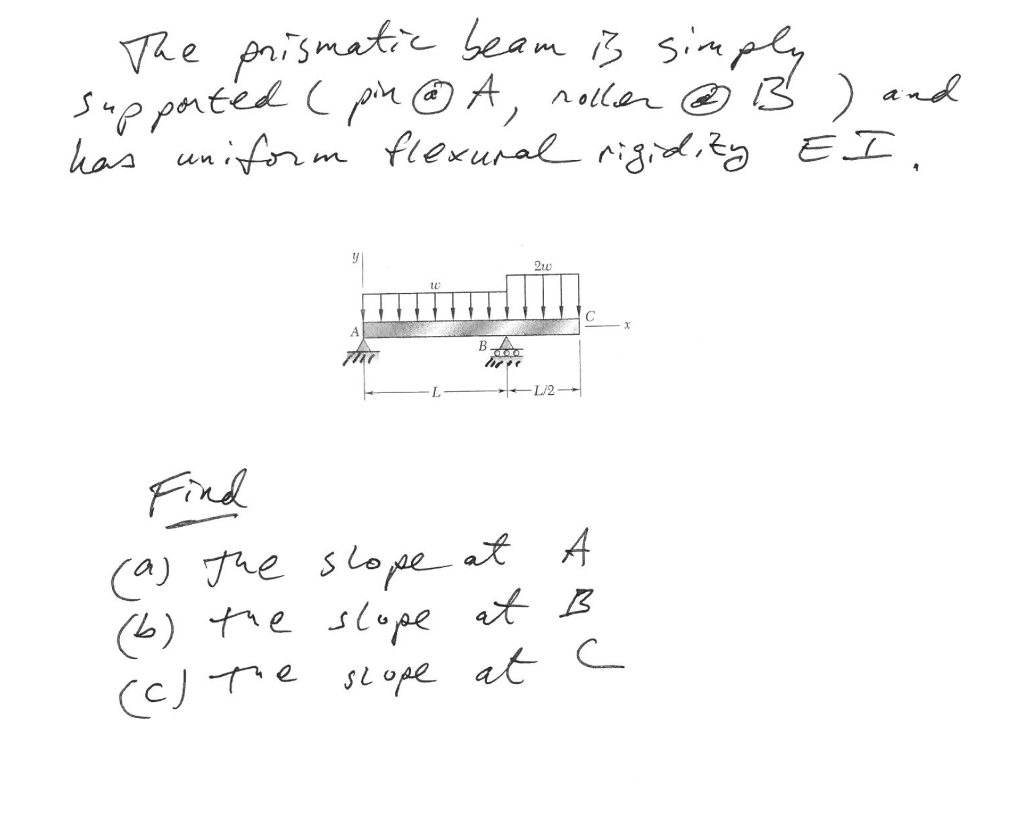 The prismatic beam is simply
supported (pin @ A, roller @ B) and
has uniform flexural rigidity EI.
y
2w
w
C
A
x
B
L
L/2
Find
(a) The slope at A
(b) the slope at B
(c) the slope at C